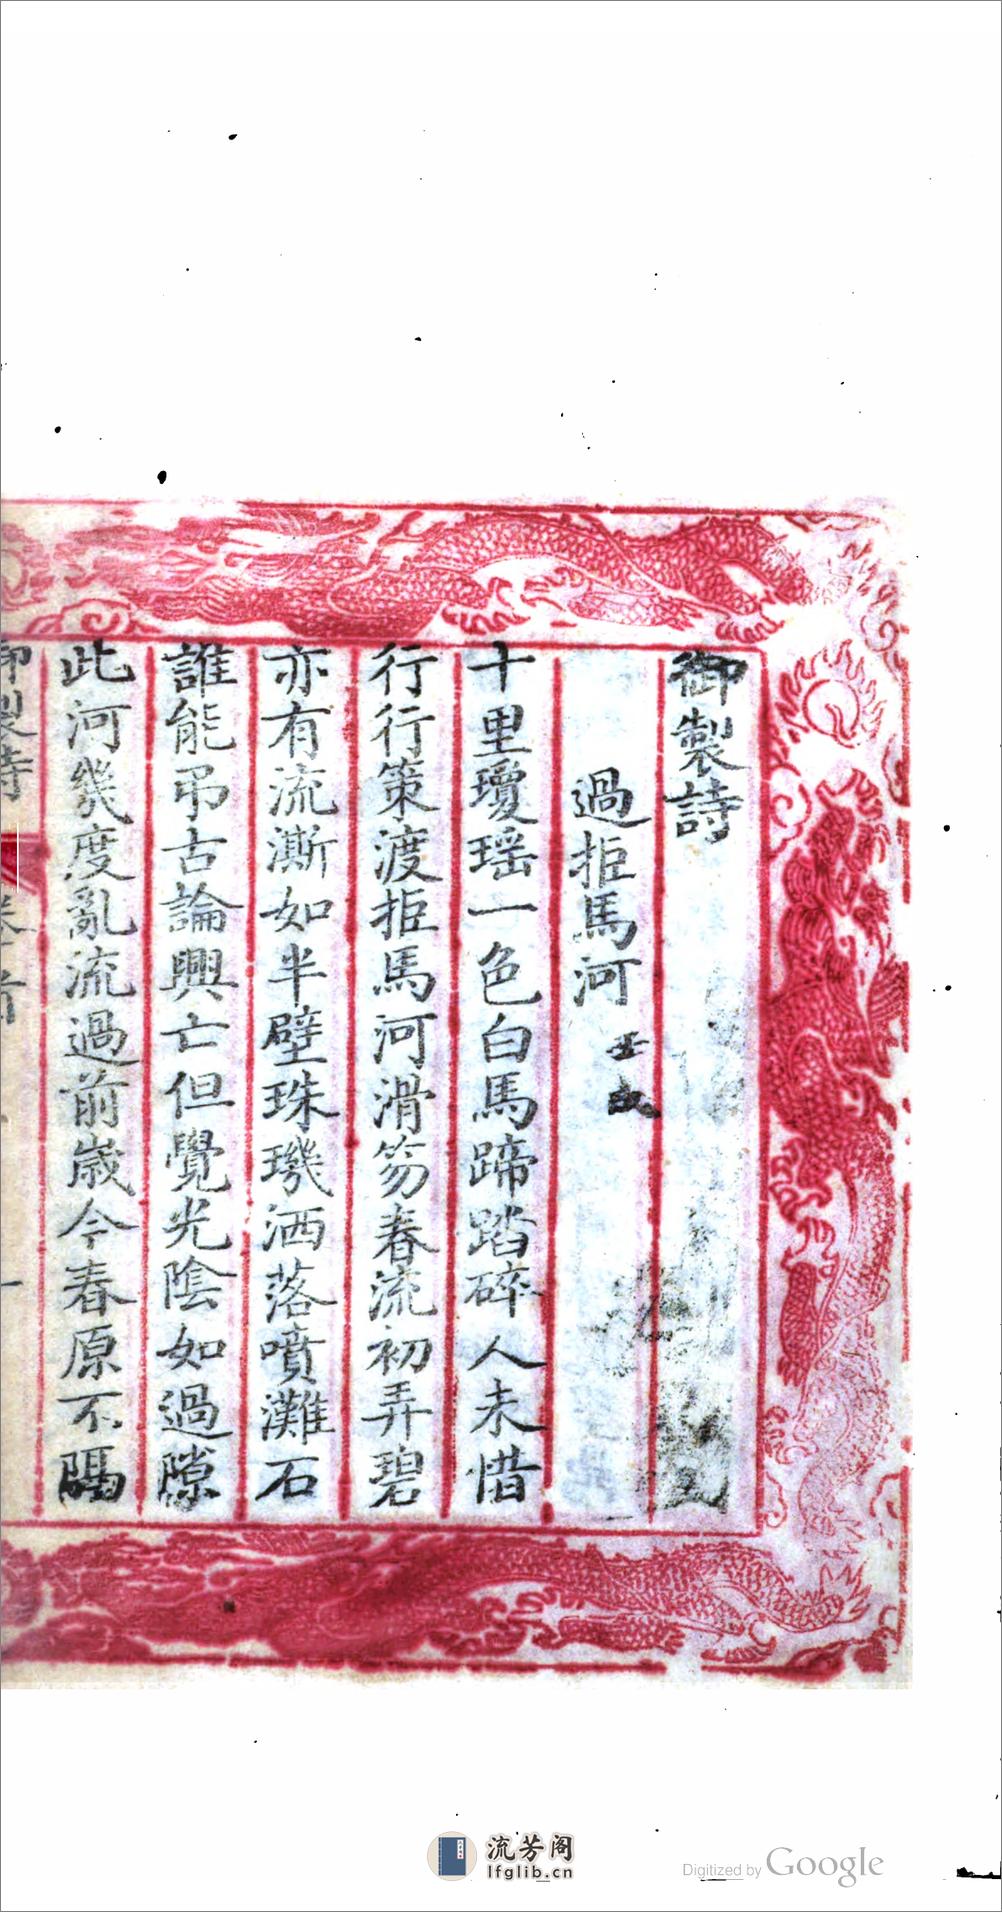 御製詩
過拒馬河 壬戌
十里瓊瑶一色白馬蹄踏碎人未惜
行行策渡拒馬河滑笏春流初弄碧
亦有流澌如半壁珠璣洒落噴灘石
誰能弔古論興亡但覺光陰如過隙
此河幾度亂流過前歲今春原不隔
御製詩 卷首 一
流芳阁
lfglib.cn
Digitized by Google